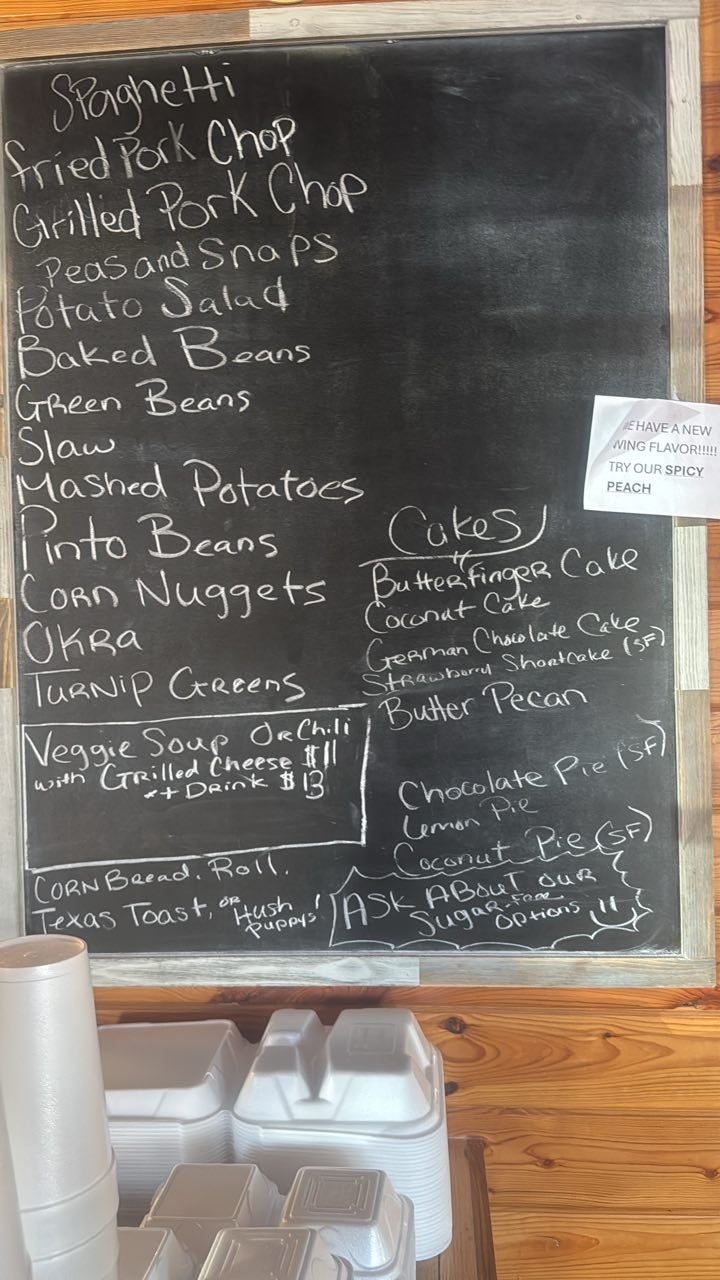 Spaghetti
Fried Pork Chop
Grilled Pork Chop
Peas and Snaps
Potato Salad
Baked Beans
Green Beans
Slaw
Mashed Potatoes
Pinto Beans
Corn Nuggets
Okra
Turnip Greens
Veggie Soup Or Chili
with Grilled Cheese $11
*+ Drink $13
Corn Bread. Roll.
Texas Toast, or Hush
Puppys!
WE HAVE A NEW
WING FLAVOR!!!!!
TRY OUR SPICY
PEACH
Cakes
Butterfinger Cake
Coconut Cake
German Chocolate Cake
Strawberry Shortcake (SF)
Butter Pecan
Chocolate Pie (SF)
Lemon Pie
Coconut Pie (SF)
Ask About our
Sugar-free
Options